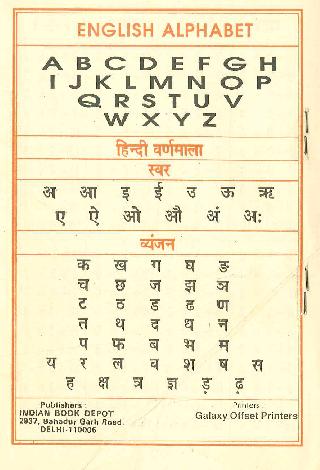 ENGLISH ALPHABET
A B C D E F G H
I J K L M N O P
Q R S T U V
W X Y Z
हिन्दी वर्णमाला
स्वर
अ आ इ ई उ ऊ ऋ
ए ऐ ओ औ अं अः
व्यंजन
क ख ग घ ङ
च छ ज झ ञ
ट ठ ड ढ ण
त थ द ध न
प फ ब भ म
य र ल व श ष स
ह क्ष त्र ज्ञ ड़ ढ़
Publishers :
INDIAN BOOK DEPOT
2937, Bahadur Garh Road,
DELHI-110006
Printers :
Galaxy Offset Printers